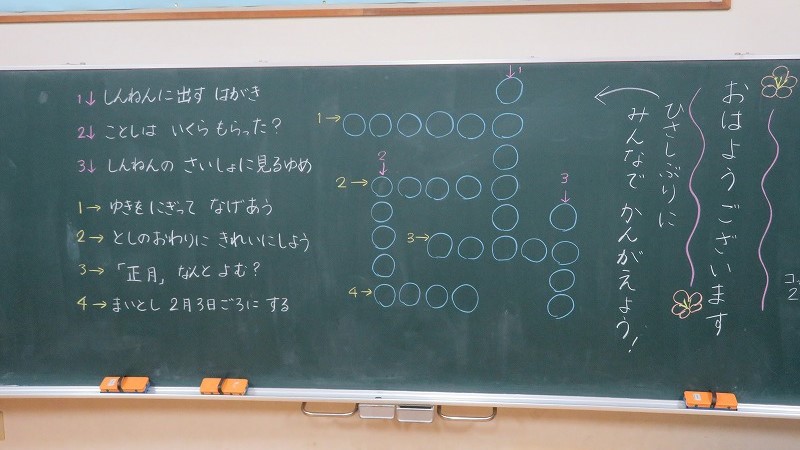 おはようございます
ひさしぶりに
みんなで かんがえよう!
1↓ しんねんに出す はがき
2↓ ことしは いくら もらった?
3↓ しんねんの さいしょに見るゆめ
1→ ゆきを にぎって なげあう
2→ としのおわりに きれいにしよう
3→ 「正月」なんと よむ?
4→ まいとし 2月3日ごろに する
1
1→
2
2→
3
3→
4→